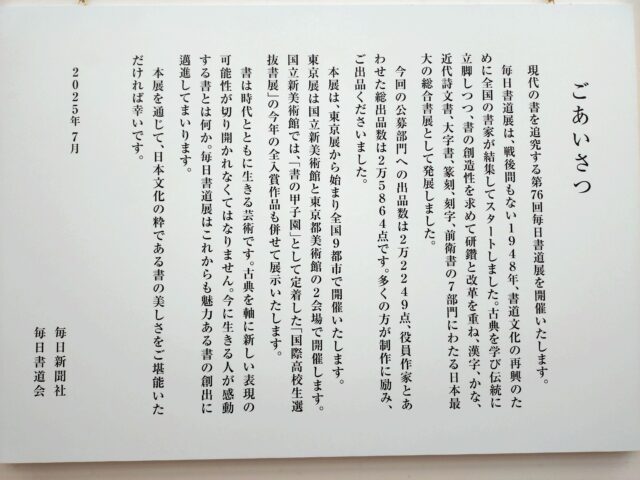 ごあいさつ
現代の書を追究する第76回毎日書道展を開催いたします。
毎日書道展は、戦後間もない1948年、書道文化の再興のた
めに全国の書家が結集してスタートしました。古典を学び伝統に
立脚しつつ、書の創造性を求めて研鑽と改革を重ね、漢字、かな、
近代詩文書、大字書、篆刻、刻字、前衛書の7部門にわたる日本最
大の総合書展として発展しました。
今回の公募部門への出品数は2万2249点、役員作家とあ
わせた総出品数は2万5864点です。多くの方が制作に励み、
ご出品くださいました。
本展は、東京展から始まり全国9都市で開催いたします。
東京展は国立新美術館と東京都美術館の2会場で開催します。
国立新美術館では、「書の甲子園」として定着した「国際高校生選
抜書展」の今年の全入賞作品も併せて展示いたします。
書は時代とともに生きる芸術です。古典を軸に新しい表現の
可能性が切り開かれなくてはなりません。今に生きる人が感動
する書とは何か。毎日書道展はこれからも魅力ある書の創出に
邁進してまいります。
本展を通じて、日本文化の粋である書の美しさをご堪能いた
だければ幸いです。
2025年7月
毎日新聞社
毎日書道会